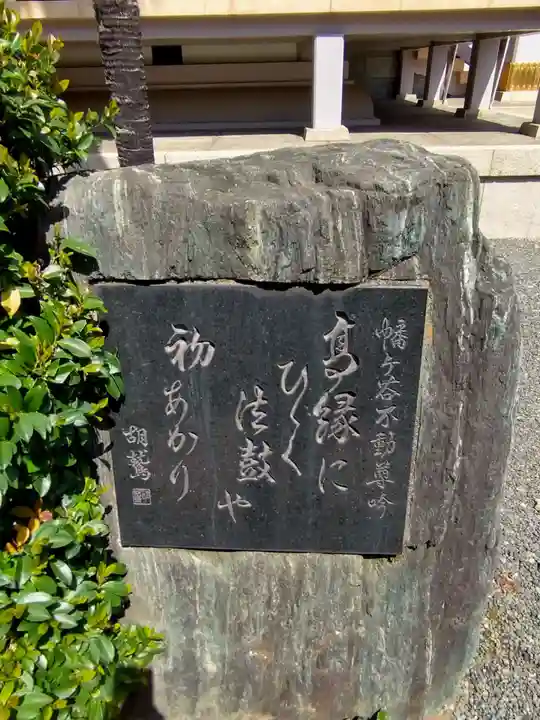 幡ヶ谷不動尊吟
高縁に
ひゞく
法鼓や
初あかり
胡鷲